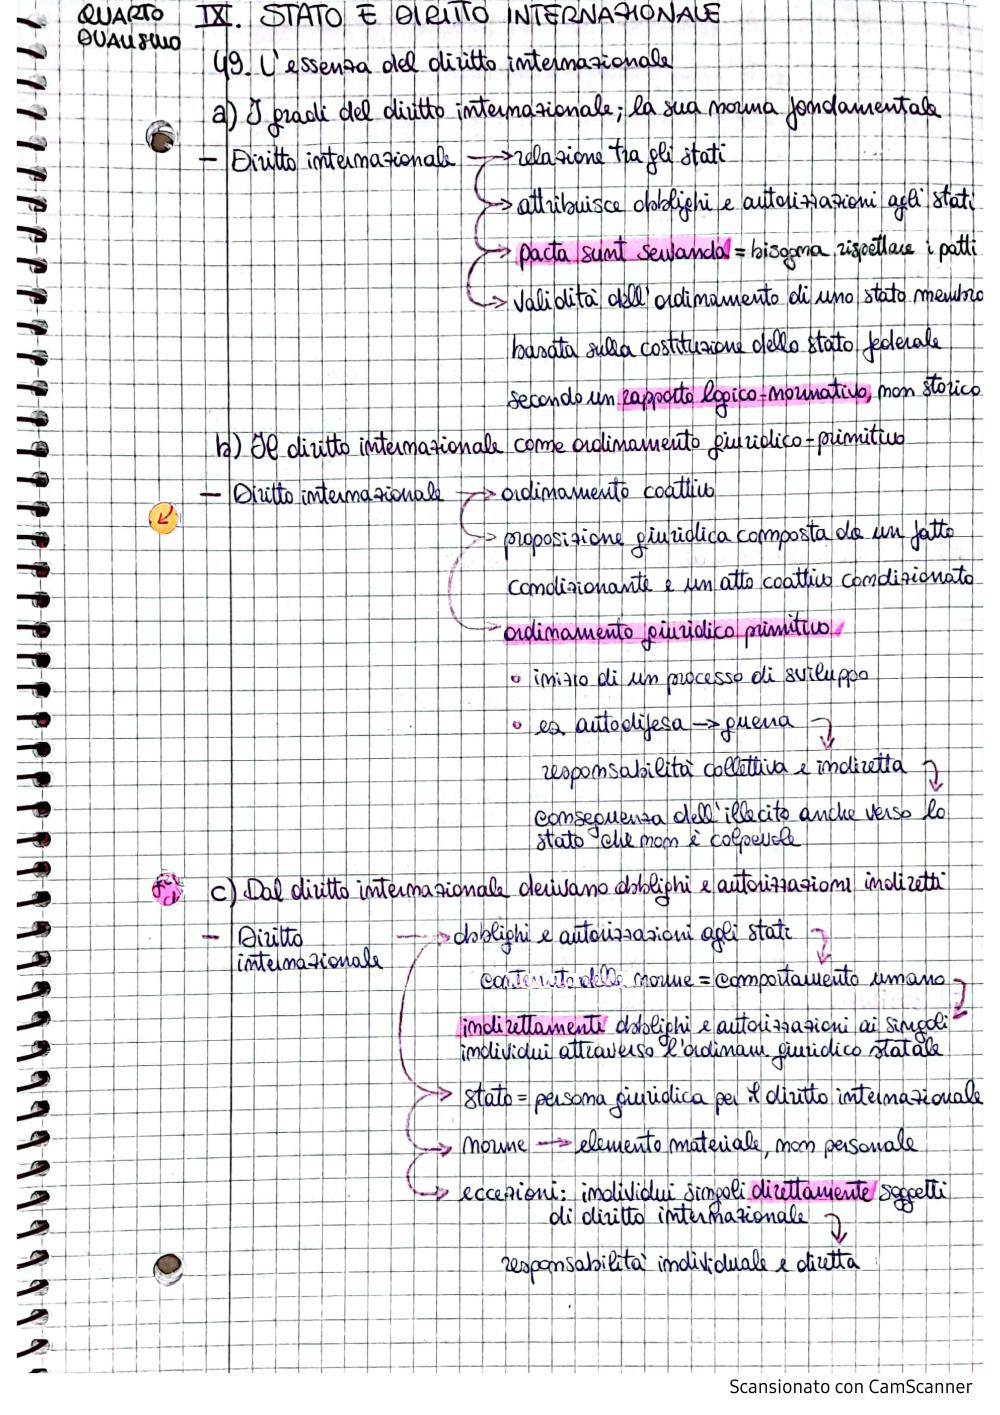 QUARTO IX. STATO E DIRITTO INTERNAZIONALE
QUADERNO
49. L'essenza del diritto internazionale
a) I gradi del diritto internazionale; la sua norma fondamentale
– Diritto internazionale → relazione tra gli stati
→ attribuisce obblighi e autorizzazioni agli stati
→ pacta sunt servanda = bisogna rispettare i patti
→ validità dell'ordinamento di uno stato membro
basata sulla costituzione dello stato federale
secondo un rapporto logico-normativo, non storico
b) Il diritto internazionale come ordinamento giuridico-primitivo
– Diritto internazionale → ordinamento coattivo
→ proposizione giuridica composta da un fatto
condizionante e un atto coattivo condizionato
→ ordinamento giuridico primitivo
• inizio di un processo di sviluppo
• es autodifesa → guerra
responsabilità collettiva e indiretta
conseguenza dell'illecito anche verso lo
stato che non è colpevole
c) Dal diritto internazionale derivano obblighi e autorizzazioni indiretti
– Diritto → obblighi e autorizzazioni agli stati
internazionale
contenuto delle norme = comportamento umano
indirettamente obblighi e autorizzazioni ai singoli
individui attraverso l'ordinam. giuridico statale
→ stato = persona giuridica per il diritto internazionale
→ norme → elemento materiale, non personale
→ eccezioni: individui singoli direttamente soggetti
di diritto internazionale
responsabilità individuale e diretta
Scansionato con CamScanner